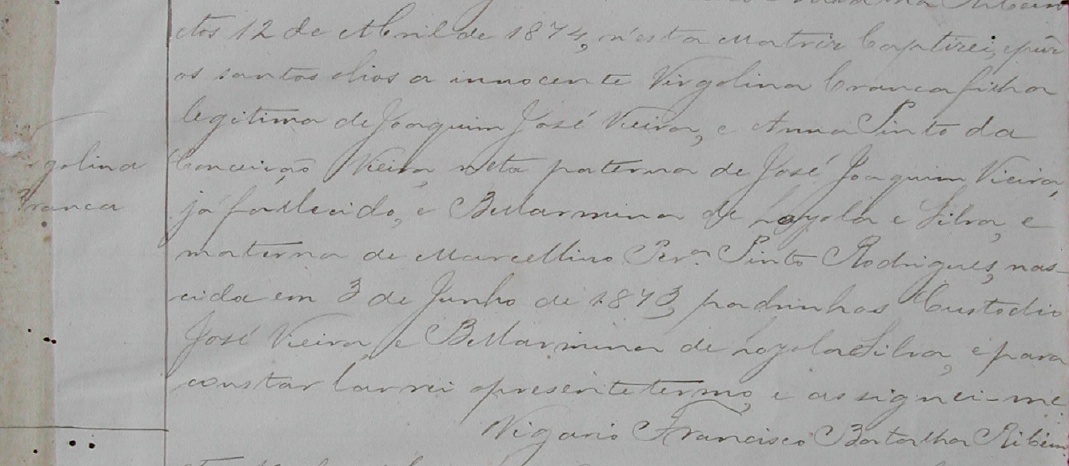 Ribeiro
Aos 12 de Abril de 1874, n'esta Matriz baptizei, e puz
os santos olios a innocente Virgolina branca filha
legitima de Joaquim José Vieira, e Anna Pinto da
golina
Conceição Vieira, neta paterna de José Joaquim Vieira,
Branca
já fallecido, e Bellarmina de Loyola e Silva, e
materna de Marcellino Per.ª Pinto Rodrigues, nas-
cida em 3 de Junho de 1873, padrinhos Custodio
José Vieira, e Bellarmina de Loyola Silva, e para
constar lavrei o presente termo, e assignei-me
Vigario Francisco Ribeiro